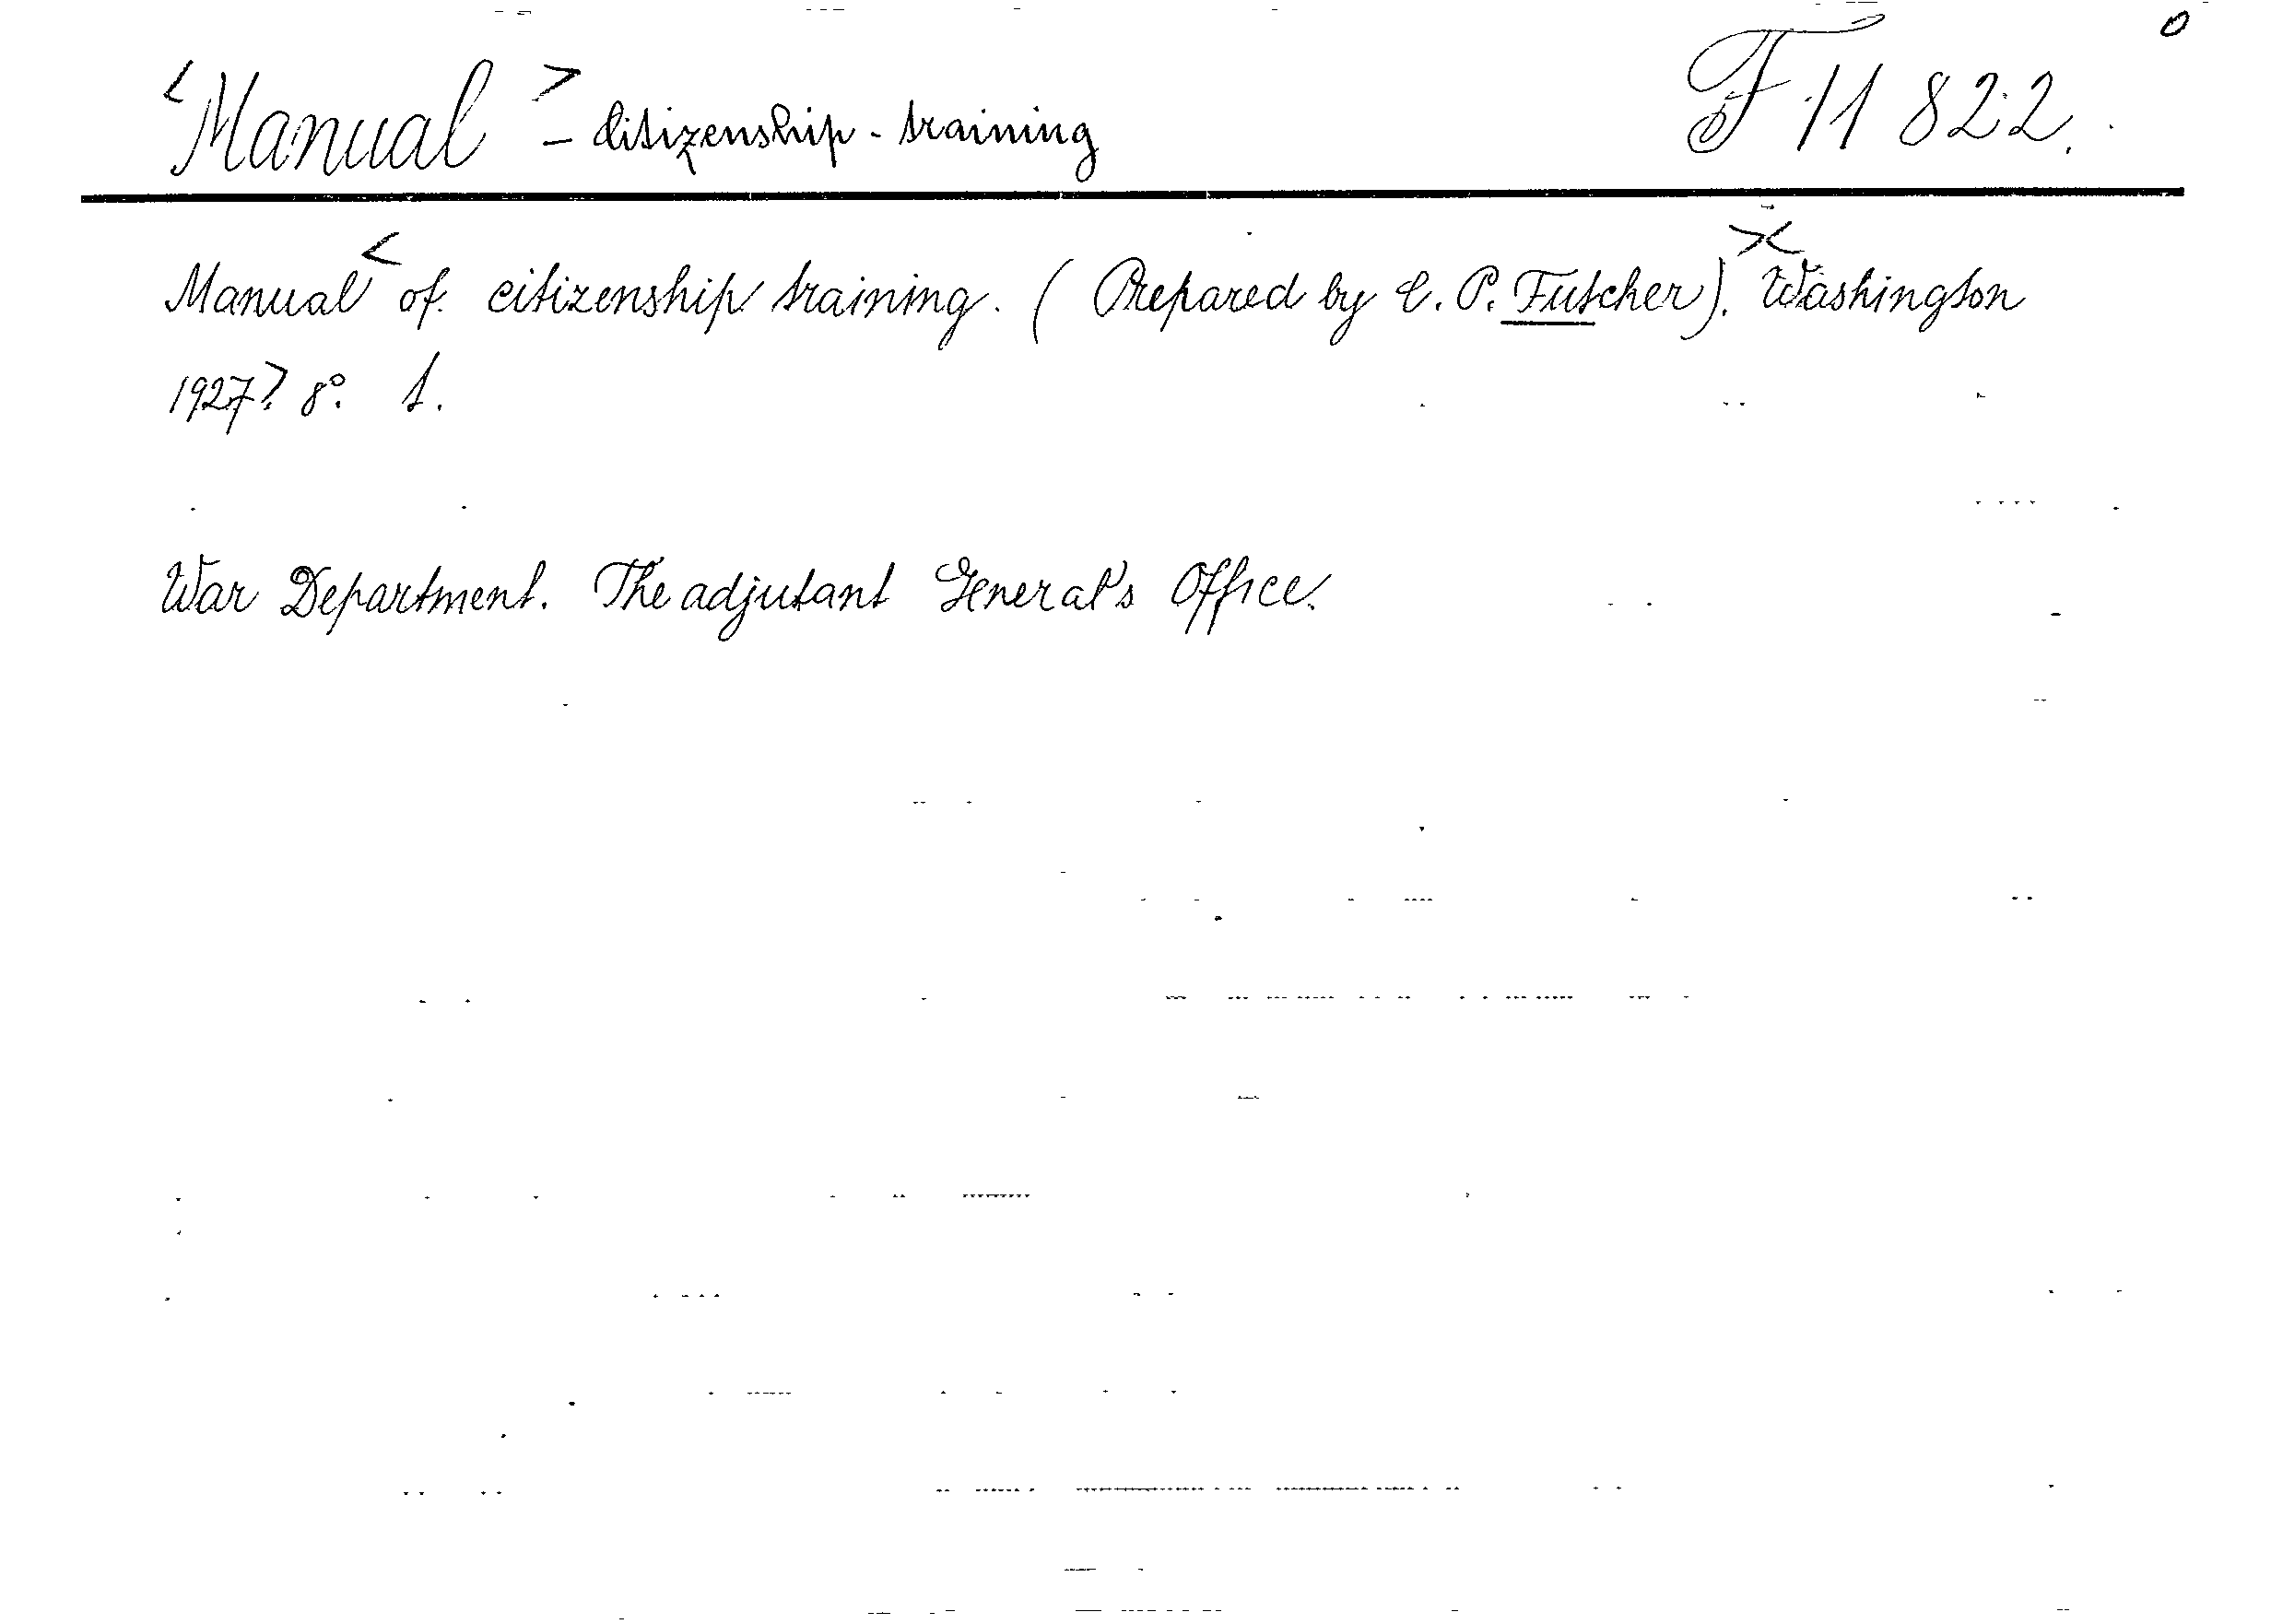 <Manual> - Citizenship-training F 11 822.
Manual < of citizenship training. (Prepared by C. P. Futcher). >< Washington
1927? 8°. 1.
War Department. The adjutant General's Office.